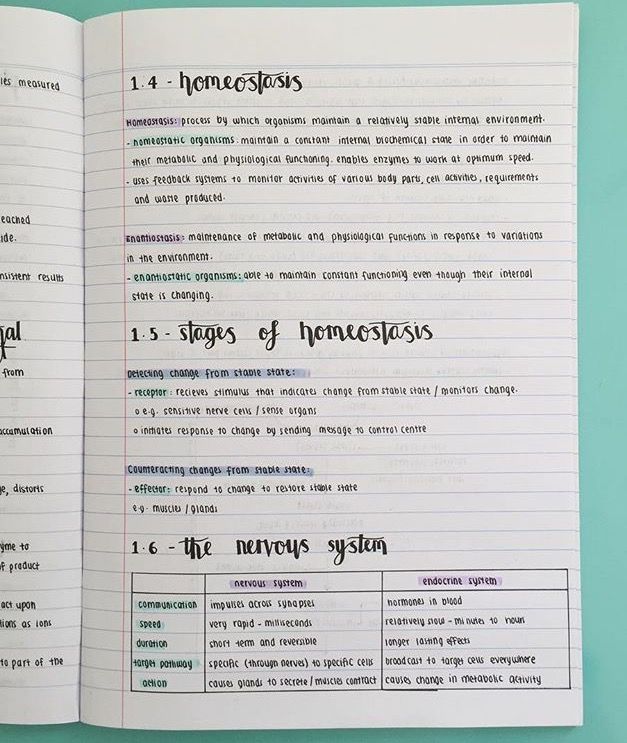 ies measured
eached
ide.
nsistent results
from
accumulation
e, distorts
yme to
of product
act upon
tions as ions
to part of the
1.4 - homeostasis
Homeostasis: process by which organisms maintain a relatively stable internal environment.
- homeostatic organisms: maintain a constant internal biochemical state in order to maintain
their metabolic and physiological functioning. enables enzymes to work at optimum speed.
- uses feedback systems to monitor activities of various body parts, cell activities, requirements
and waste produced.
Enantiostasis: maintenance of metabolic and physiological functions in response to variations
in the environment.
- enantiostatic organisms: able to maintain constant functioning even though their internal
state is changing.
1.5 - stages of homeostasis
Detecting change from stable state:
- receptor: recieves stimulus that indicates change from stable state / monitors change.
o e.g. sensitive nerve cells / sense organs
o initiates response to change by sending message to control centre
Counteracting changes from stable state:
- effector: respond to change to restore stable state
e.g. muscles / glands
1.6 - the nervous system
nervous system endocrine system
communication impulses across synapses hormones in blood
speed very rapid - milliseconds relatively slow - minutes to hours
duration short term and reversible longer lasting effects
target pathway specific (through nerves) to specific cells broadcast to target cells everywhere
action causes glands to secrete / muscles contract causes change in metabolic activity